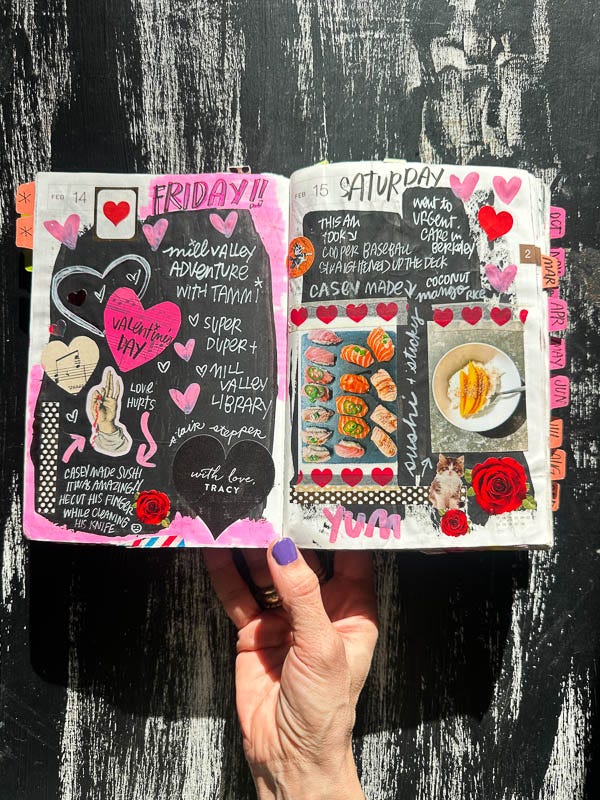 FEB 14
FRIDAY!!
mill VALLEY
ADVENTURE
WITH TAMMI
VALENTINE'S
DAY
SUPER
DUPER+
MILL
VALLEY
LIBRARY
LOVE
HURTS
stair stepper
with love,
TRACY
CASEY MADE SUSHI
IT WAS AMAZING!!
HE CUT HIS FINGER
WHILE CLEANING
HIS KNIFE
FEB 15
SATURDAY
THIS AM
TOOK
COOPER BASEBALL
STRAIGHTENED UP THE DECK
went to
URGENT
CARE in
BERKLEY
2
CASEY MADE
COCONUT
mango RICE
sushi + sticky
YUM
OCT
MAR
APR
MAY
JUN